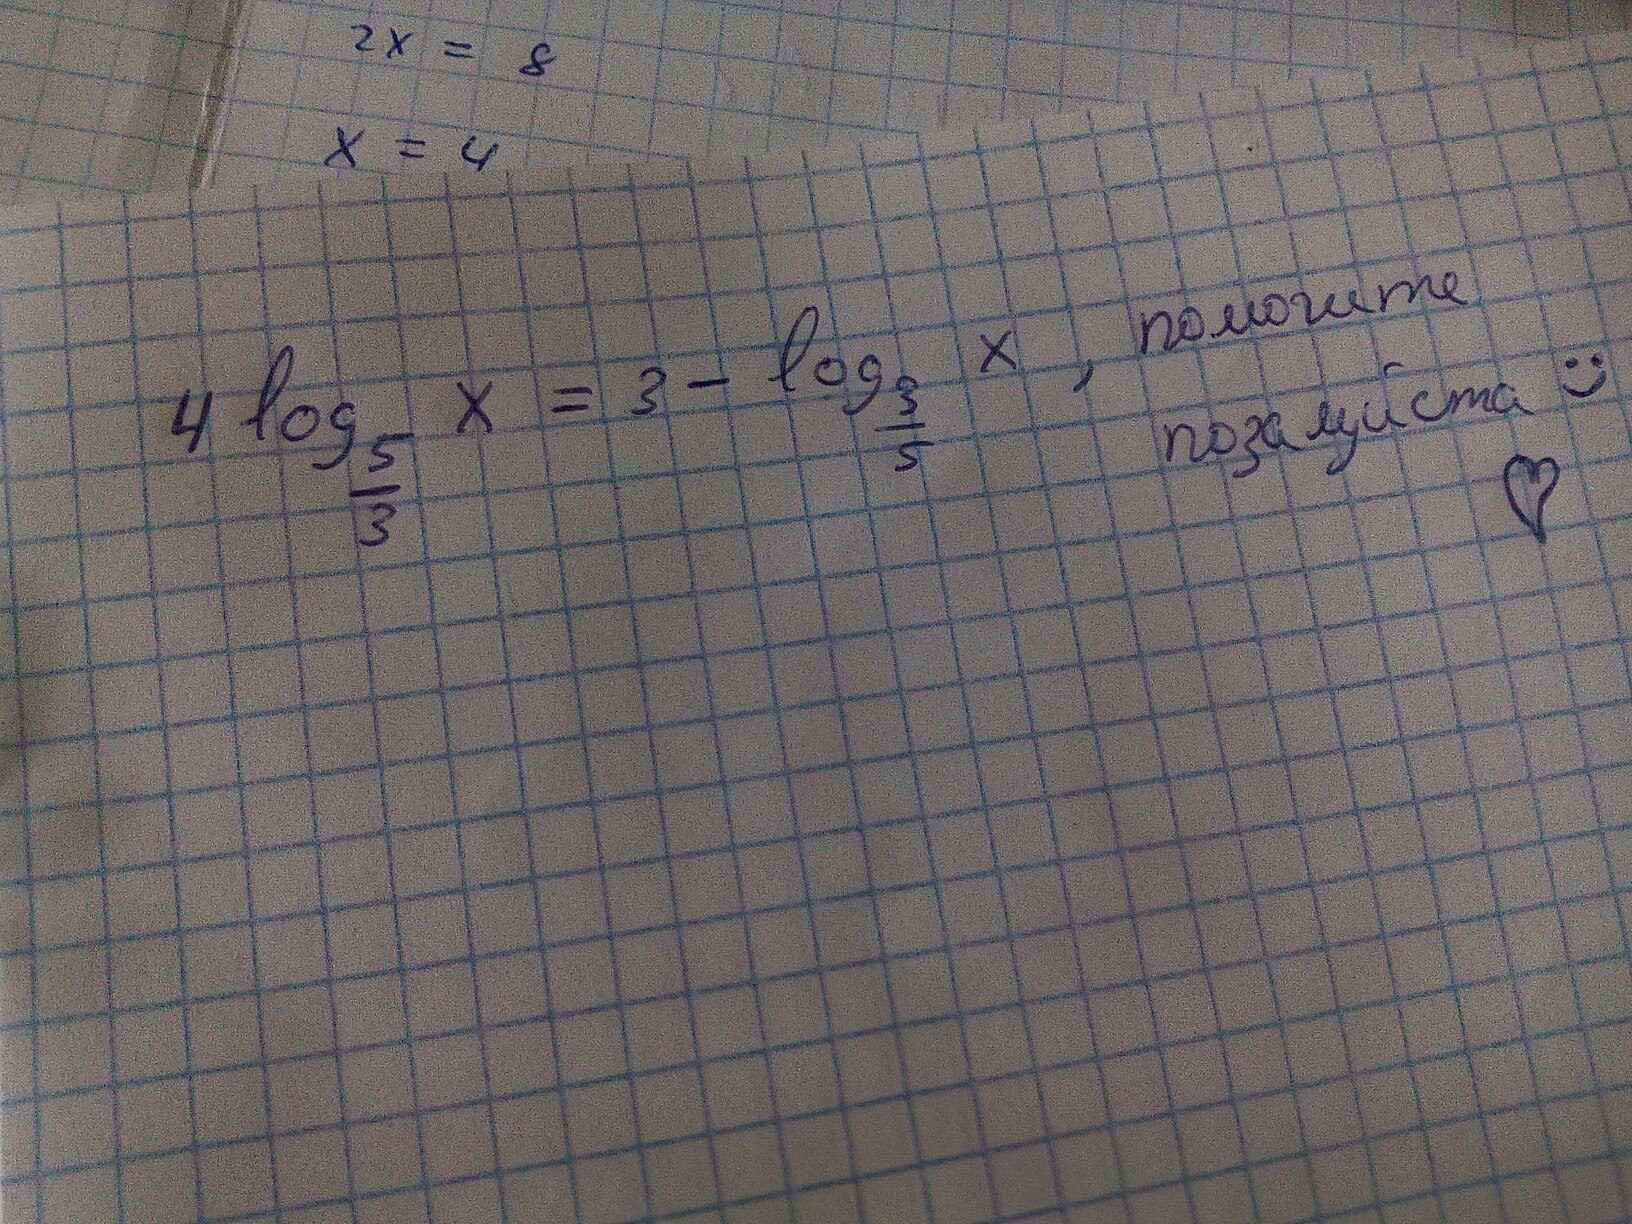 2x = 8
x = 4
4 log 5/3 x = 3 - log 3/5 x , помогите
позалуйста :)